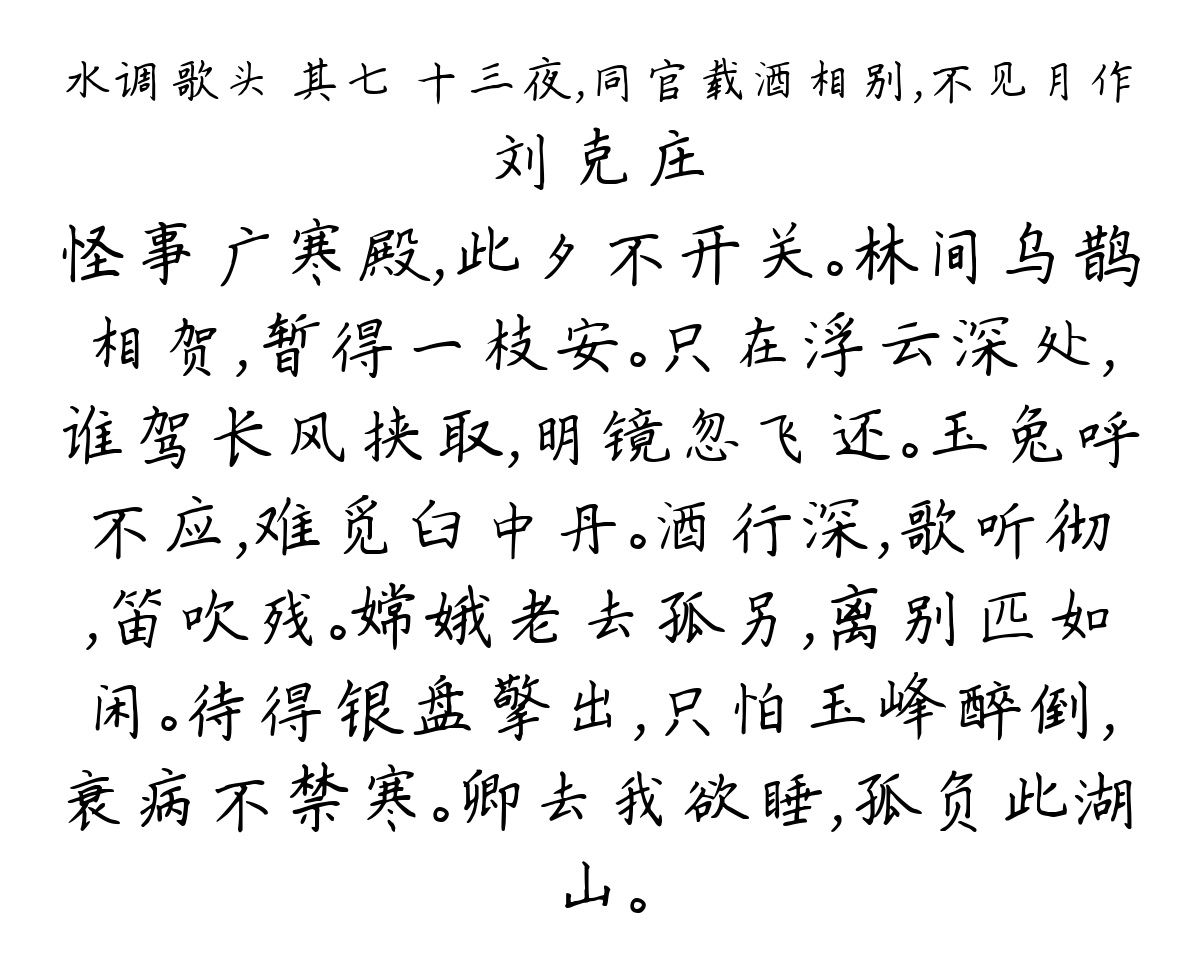 水调歌头 其七 十三夜,同官载酒相别,不见月作
刘克庄
怪事广寒殿,此夕不开关。林间乌鹊
相贺,暂得一枝安。只在浮云深处,
谁驾长风挟取,明镜忽飞还。玉兔呼
不应,难觅臼中丹。酒行深,歌听彻
,笛吹残。嫦娥老去孤另,离别匹如
闲。待得银盘擎出,只怕玉峰醉倒,
衰病不禁寒。卿去我欲睡,孤负此湖
山。